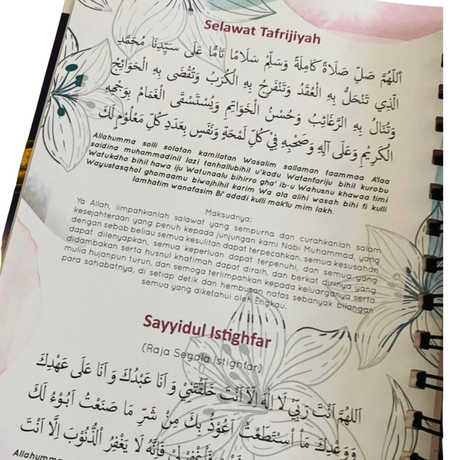 Selawat Tafrijiyah
اَللّٰهُمَّ صَلِّ صَلَاةً كَامِلَةً وَسَلِّمْ سَلَامًا تَامًّا عَلَى سَيِّدِنَا مُحَمَّدٍ
الَّذِي تَنْحَلُّ بِهِ الْعُقَدُ وَتَنْفَرِجُ بِهِ الْكُرَبُ وَتُقْضَى بِهِ الْحَوَائِجُ
وَتُنَالُ بِهِ الرَّغَائِبُ وَحُسْنُ الْخَوَاتِمِ وَيُسْتَسْقَى الْغَمَامُ بِوَجْهِهِ
الْكَرِيْمِ وَعَلَى آلِهِ وَصَحْبِهِ فِيْ كُلِّ لَمْحَةٍ وَنَفَسٍ بِعَدَدِ كُلِّ مَعْلُوْمٍ لَكَ
Allahumma solli solatan kamilatan Wasalim sallaman taammaa A'laa
saidina muhammadinil lazi tanhallubihil u'kadu Watanfariju bihil kurobu
Watukdha bihil hawa iju Watunaalu bihirro gha' ib-u Wahusnu khawaa timi
Wayustasqhol ghomaamu biwajhihil karim Wa ala alihi wasah bihi fi kulli
lamhatim wanafasim Bi' adadi kulli mak'lu mim lakh.
Maksudnya:
Ya Allah, limpahkanlah salawat yang sempurna dan curahkanlah salam
kesejahteraan yang penuh kepada junjungan kami Nabi Muhammad, yang
dengan sebab beliau semua kesulitan dapat terpecahkan, semua kesusahan
dapat dilenyapkan, semua keperluan dapat terpenuhi, dan semua yang
didambakan serta husnul khatimah dapat diraih, dan berkat dirinya yang
mulia hujanpun turun, dan semoga terlimpahkan kepada keluarganya serta
para sahabatnya, di setiap detik dan hembusan nafas sebanyak bilangan
semua yang diketahui oleh Engkau.
Sayyidul Istighfar
(Raja Segala Istighfar)
اَللّٰهُمَّ اَنْتَ رَبِّيْ لَا اِلٰهَ اِلَّا اَنْتَ خَلَقْتَنِيْ وَ اَنَا عَبْدُكَ وَ اَنَا عَلَى عَهْدِكَ
وَوَعْدِكَ مَا اسْتَطَعْتُ اَعُوْذُ بِكَ مِنْ شَرِّ مَا صَنَعْتُ اَبُوْءُ لَكَ
فَاِنَّهُ لَا يَغْفِرُ الذُّنُوْبَ اِلَّا اَنْتَ
Allahumma